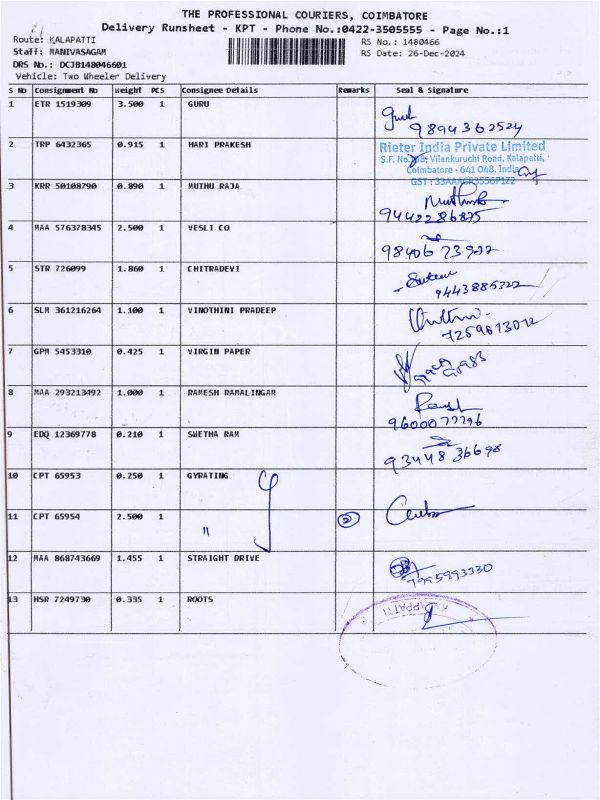 THE PROFESSIONAL COURIERS, COIMBATORE
Delivery Runsheet - KPT - Phone No.:0422-3505555 - Page No.:1
Route: KALAPATTI
RS No.: 1480466
Staff: MANIVASAGAM
RS Date: 26-Dec-2024
DRS No.: DCJB148046601
Vehicle: Two Wheeler Delivery
S No Consignment No Weight PCS Consignee Details Remarks Seal & Signature
1 ETR 1519309 3.500 1 GURU
9894362524
2 TRP 6432365 0.915 1 HARI PRAKESH
Rieter India Private Limited
S.F. Vilankuruchi Road, Kalapatti,
Coimbatore - 641 048, India
GST :
3 KRR 50108790 0.890 1 MUTHU RAJA
9442286875
4 MAA 576378345 2.500 1 VESLI CO
5 STR 726099 1.860 1 CHITRADEVI
6 SLM 361216264 1.100 1 VINOTHINI PRADEEP
7 GPM 5453310 0.425 1 VIRGIN PAPER
8 MAA 293213492 1.000 1 RAMESH RAMALINGAM
9 EDQ 12369778 0.210 1 SWETHA RAM
10 CPT 65953 0.250 1 GYRATING
11 CPT 65954 2.500 1 " 2
12 MAA 868743669 1.455 1 STRAIGHT DRIVE
13 HSR 7249730 0.335 1 ROOTS